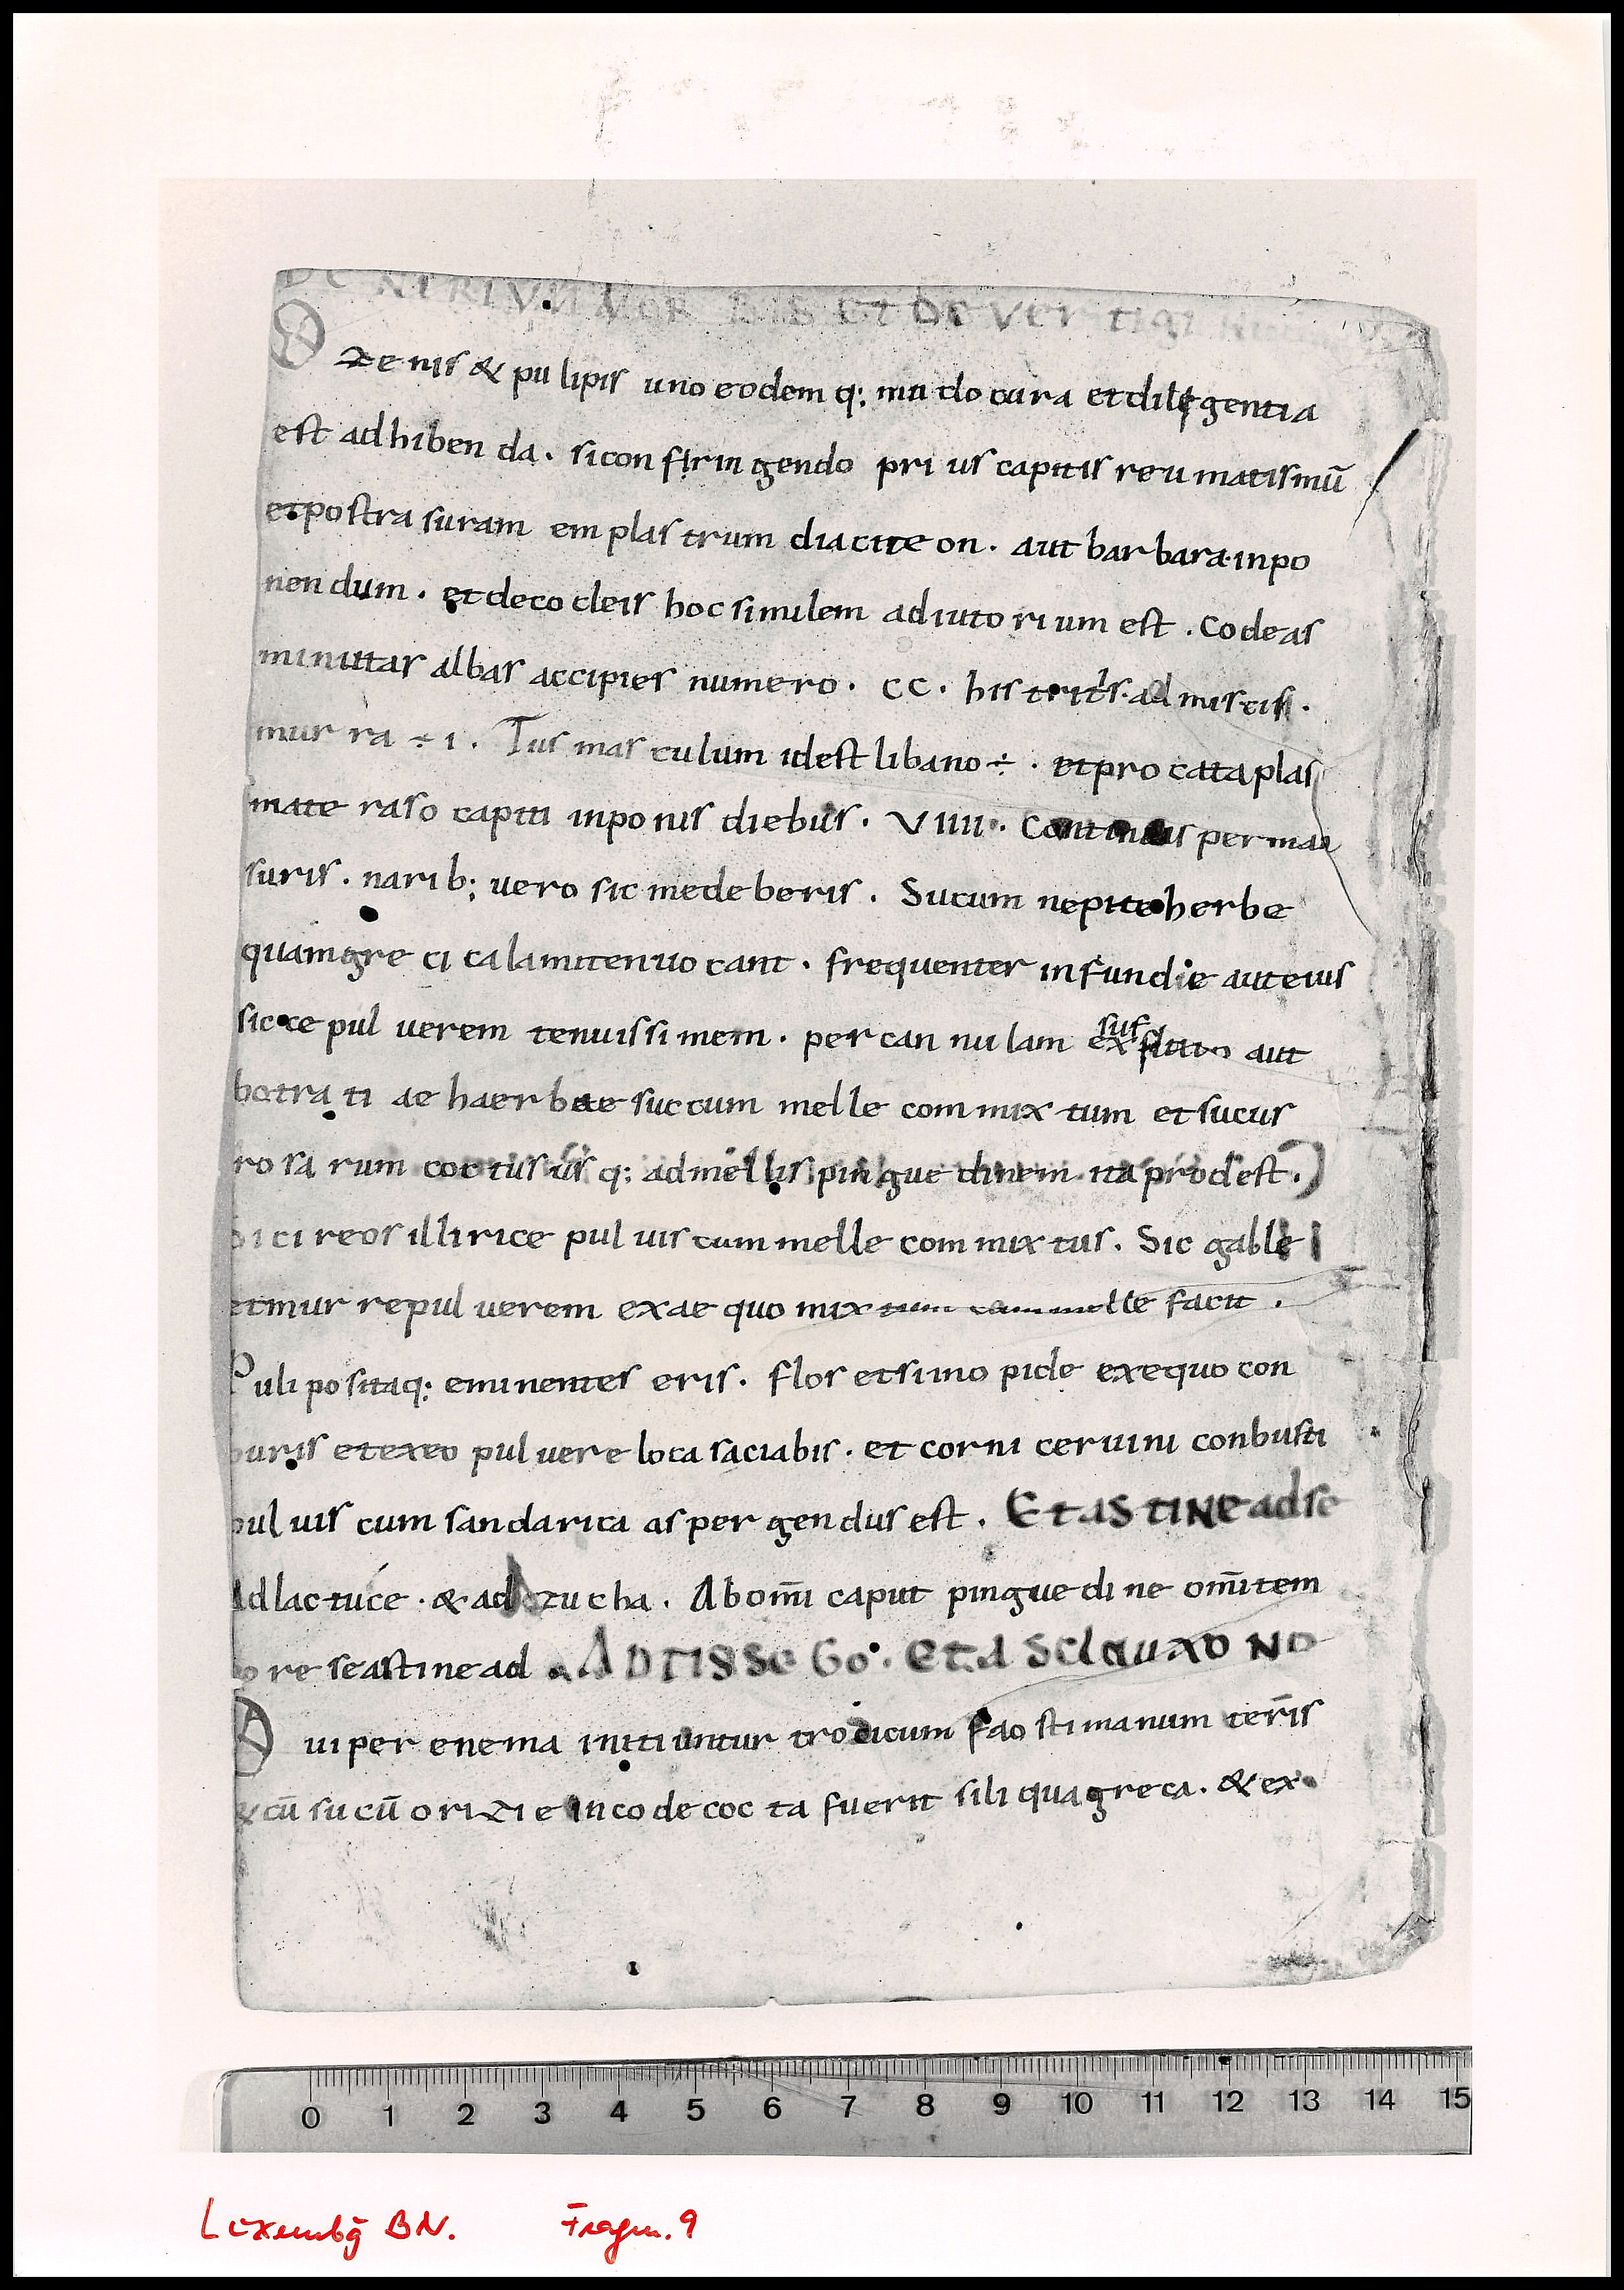 DE NARIUM MORBIS ET DE VERTIGI
Ozenis & pulipis uno eodemq; mudo cura et diligentia
est adhibenda. sic onfiringendo prius capitis reumatismū
et post rasuram emplastrum diaciteon. aut barbara inpo
nendum. et de cocleis hoc similem adiutorium est. Codeas
minuttas albas accipies numero. CC. his tritis admiscis.
murra ÷ i. Tus masculum idest libano ÷. et pro cataplas
mate raso capiti inponis diebus. VIIII. per man
suris. narib; vero sic medeberis. Sucum nepite herbe
quam greci calamitenuocant. frequenter infundie aut eius
sicce pulverem tenuissimem. per cannulam ex suf aut
botratiae haerbae succum melle commixtum et sucus
rosarum coctus usq; ad mellis pinguedinem ita prodest.
ici reos illirice pulvis cum melle commixtus. Sic galle
et murre pulverem ex aequo mixtum cum melle facit.
Pulipos itaq; eminentes eris. flos et simo pide ex equo con
buris et ex eo pulvere loca saciabis. et corni cervini conbusti
pulvis cum sandarica aspergendus est. Et astine adse
Ad lactuce. & ad zucha. Ab omī caput pinguedine omītem
pore se astine ad . AD TISSE Go. Et A SCLAUXO NO
Qui per enema initiuntur trodicum faostimanum terīs
& cū sucū orizie in co decocta fuerit siliqua greca. & ex
0 1 2 3 4 5 6 7 8 9 10 11 12 13 14 15
Luxembg BN. Fragm. 9